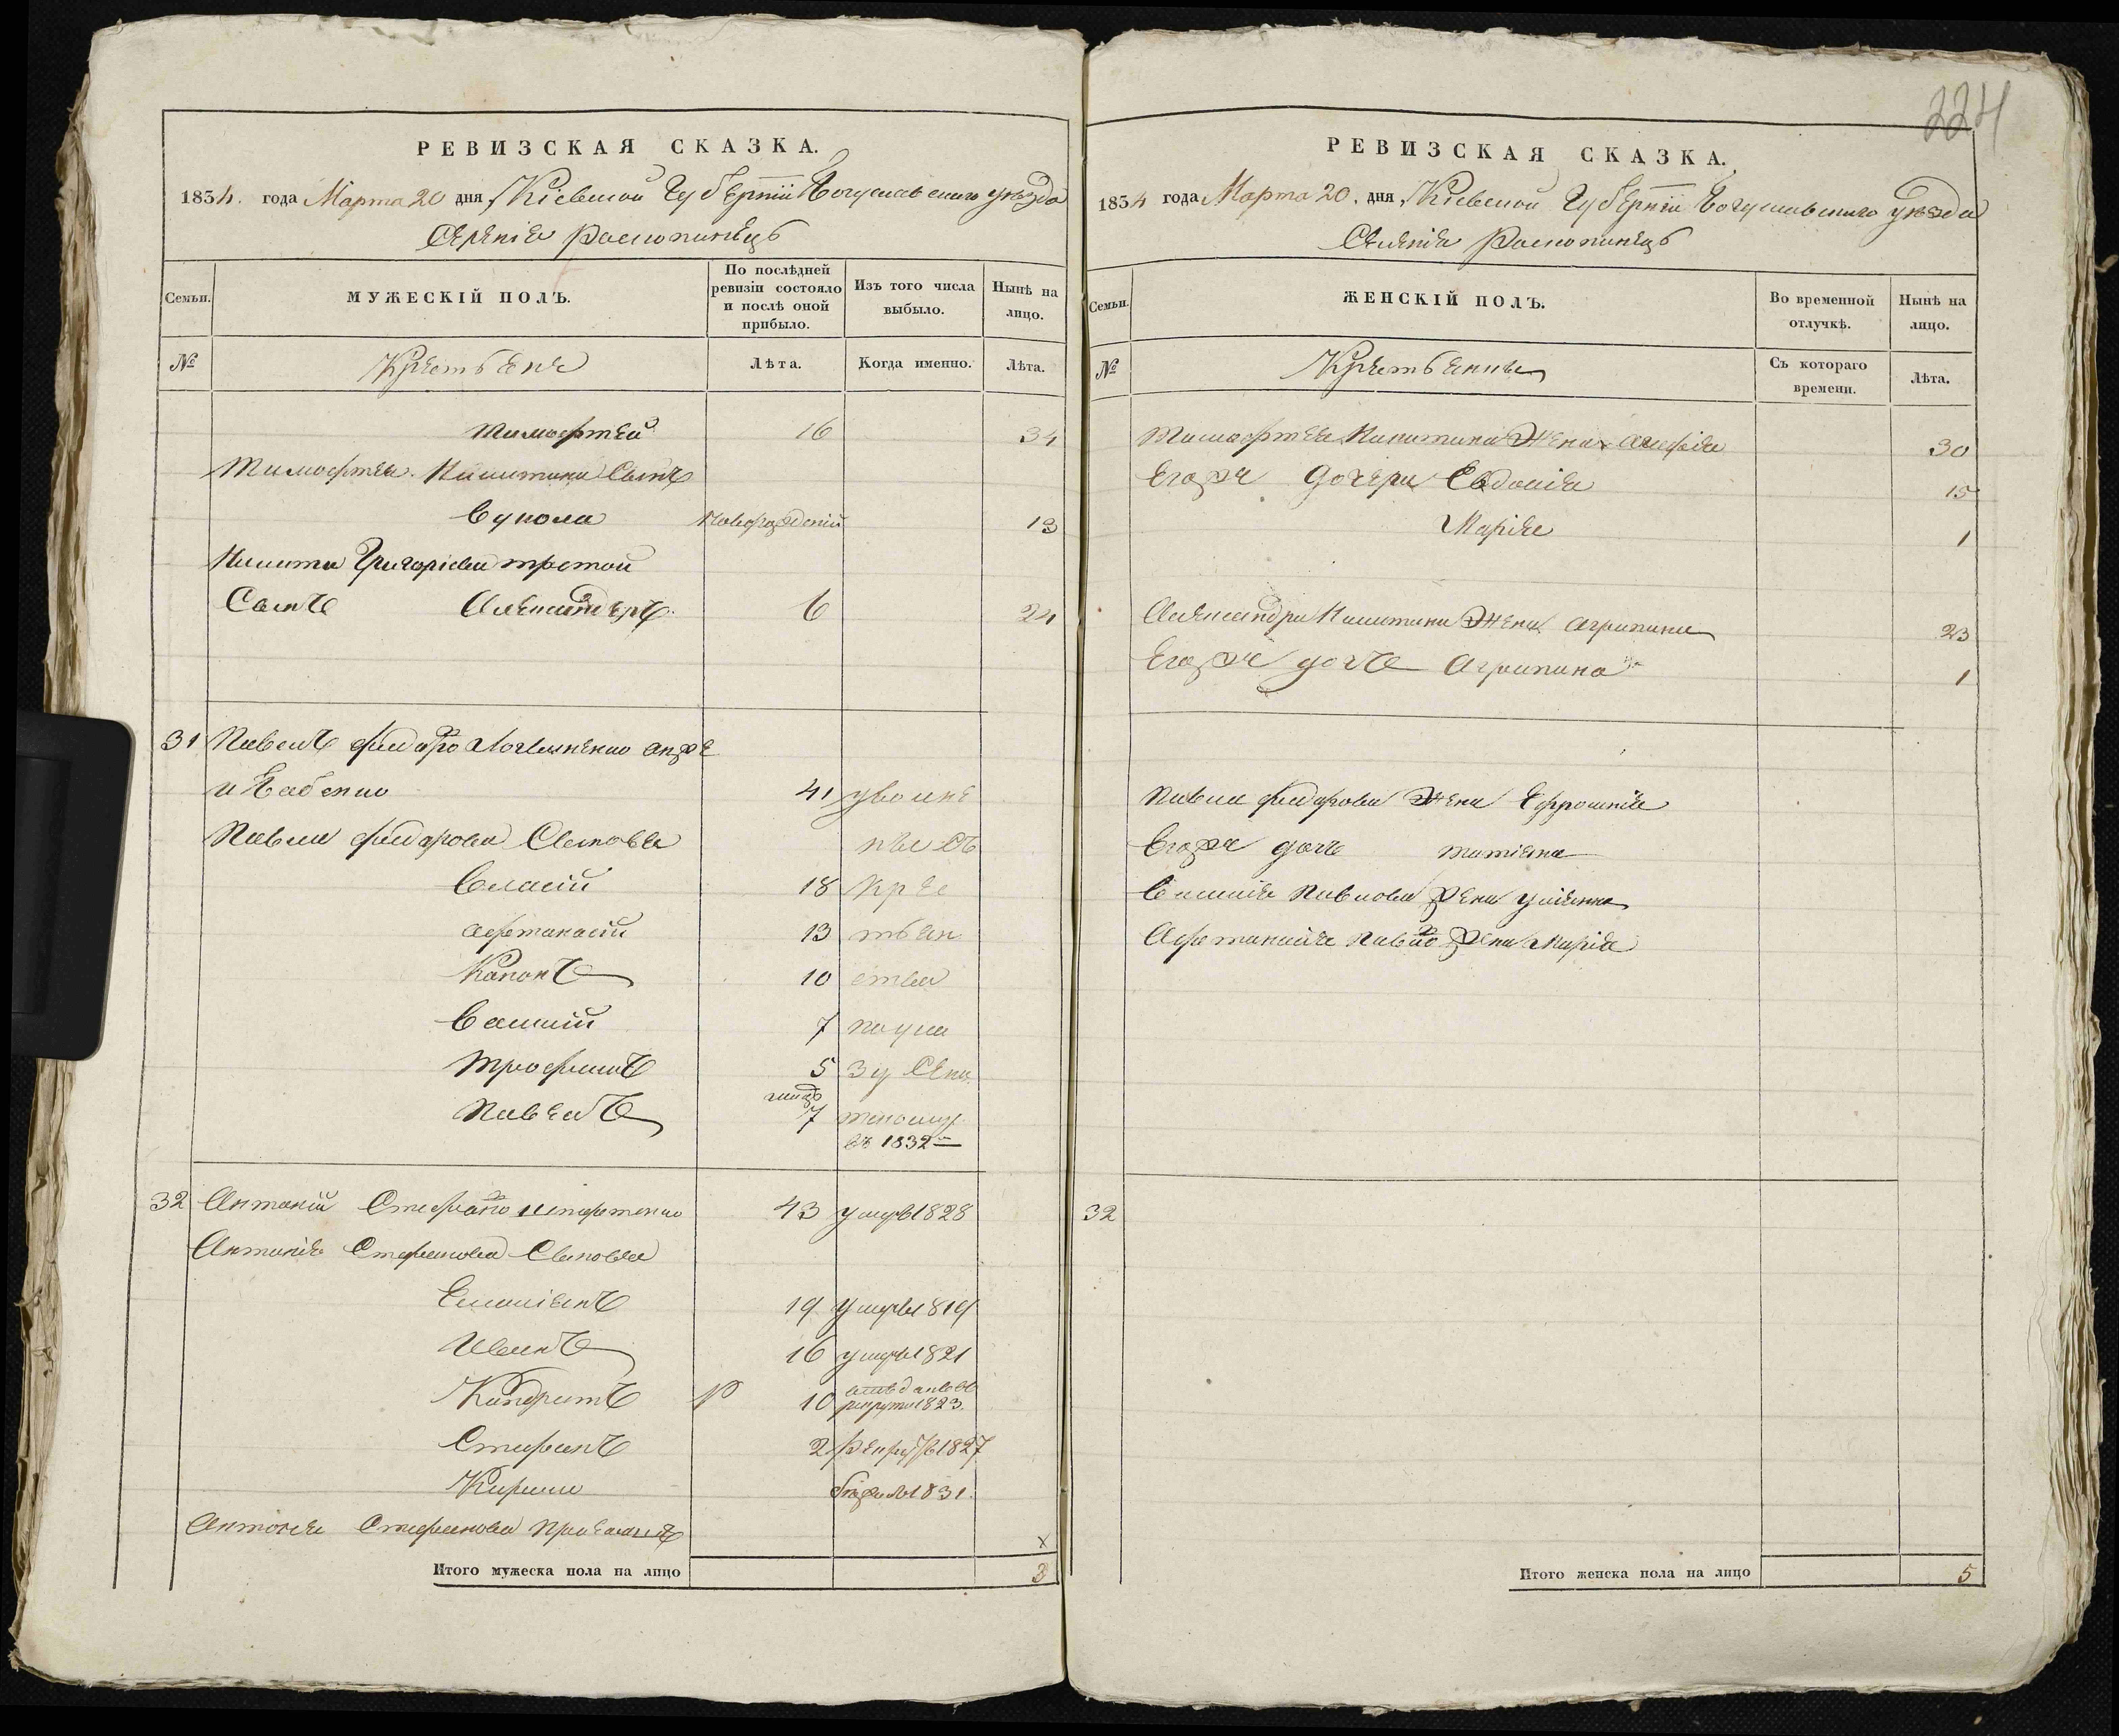 224
РЕВИЗСКАЯ СКАЗКА.
1834. года Марта 20 дня, Кіевской Губерніи Богуславскаго уѣзда
Селенія Распопинецъ
Семьи. МУЖЕСКІЙ ПОЛЪ. По послѣдней ревизіи состояло и послѣ оной прибыло. Изъ того числа выбыло. Нынѣ на лицо.
№ Крестьяне Лѣта. Когда именно. Лѣта.
Тимофтей 16 34
Тимофтея Никитина Сынъ
Вукола новорожденій 13
Никиты Григоріева третой
Сынъ Александеръ 6 24
31 Павелъ онже
и Бабенко 41 уволне
Павла Фиодорова Сыновья
Власій 18 Крес
Афтанасій 13 тьян
Капонъ 10 ства
Василій 7 по ука
Трофимъ 5 зу Сена
Павелъ 7
въ 1832
32 Антоній 43 умръ 1828
Антонія Стефанова Сыновья
Емеліянъ 19 умръ 1819
Иванъ 16 умръ 1821
Кондратъ 10 рекруты 1823.
Стефанъ 2 рекру 1827
Кирило бѣжалъ 1831.
Антонія Стефанова
Итого мужеска пола на лицо 3
РЕВИЗСКАЯ СКАЗКА.
1834 года Марта 20. дня, Кіевской Губерніи Богуславскаго уѣзда
Селенія Распопинецъ
Семьи. ЖЕНСКІЙ ПОЛЪ. Во временной отлучкѣ. Нынѣ на лицо.
№ Крестьянки Съ котораго времени. Лѣта.
Тимофтея Никитина Жена 30
Егоже дочери Евдокія 15
Марія 1
Александра Никитина Жена Агрипина 23
Егоже дочь Агрипина 1
Павла Фиодорова Жена Ефросинія
Егоже дочь Татіяна
Власія Павлова Жена Уліянна
Афтанасія Павло Жена Марія
32
Итого женска пола на лицо 5